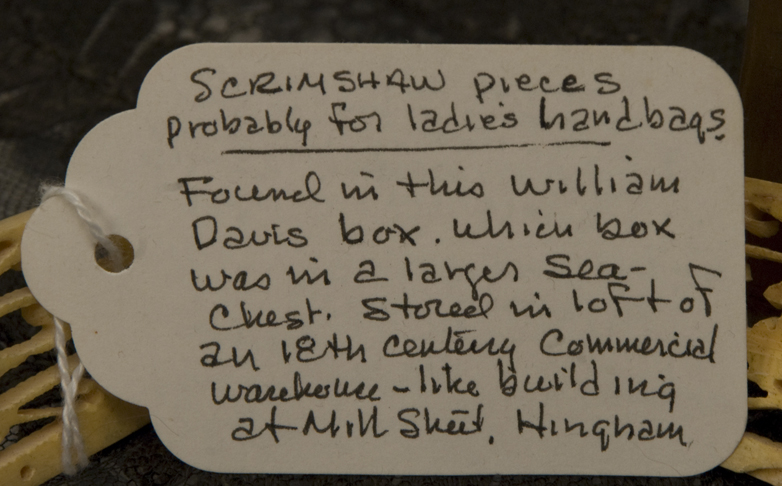 SCRIMSHAW pieces
probably for ladies handbags
Found in this William
Davis box. which box
was in a larger Sea-
Chest. Stored in loft of
an 18th century Commercial
warehouse-like building
at Mill Street, Hingham